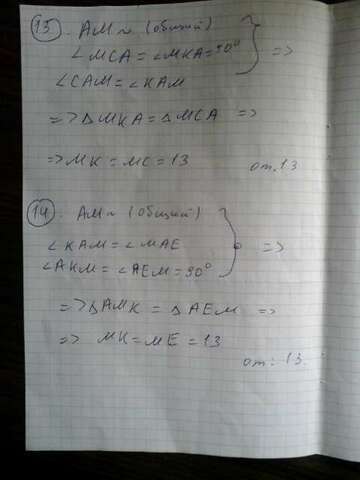 13. AM ~ (общий)
∠MCA = ∠MKA = 90°
=>
∠CAM = ∠KAM
=> △MKA = △MCA =>
=> MK = MC = 13
от. 13
14. AM ~ (общий)
∠KAM = ∠MAE
=>
∠AKM = ∠AEM = 90°
=> △AMK = △AEM =>
=> MK = ME = 13
от: 13.